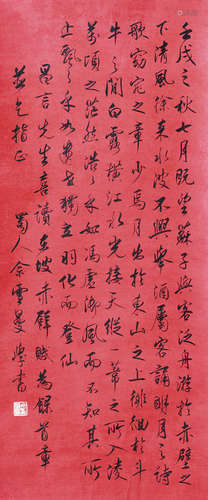 壬戌之秋七月既望蘇子與客泛舟游於赤壁之
下清風徐來水波不興舉酒屬客誦明月之詩
歌窈窕之章少焉月出於東山之上徘徊於斗
牛之間白露橫江水光接天縱一葦之所如凌
萬頃之茫然浩浩乎如馮虛御風而不知其所
止飄飄乎如遺世獨立羽化而登仙
言先生喜讀東坡赤壁賦為錄首章
並乞指正 蜀人余雪曼書